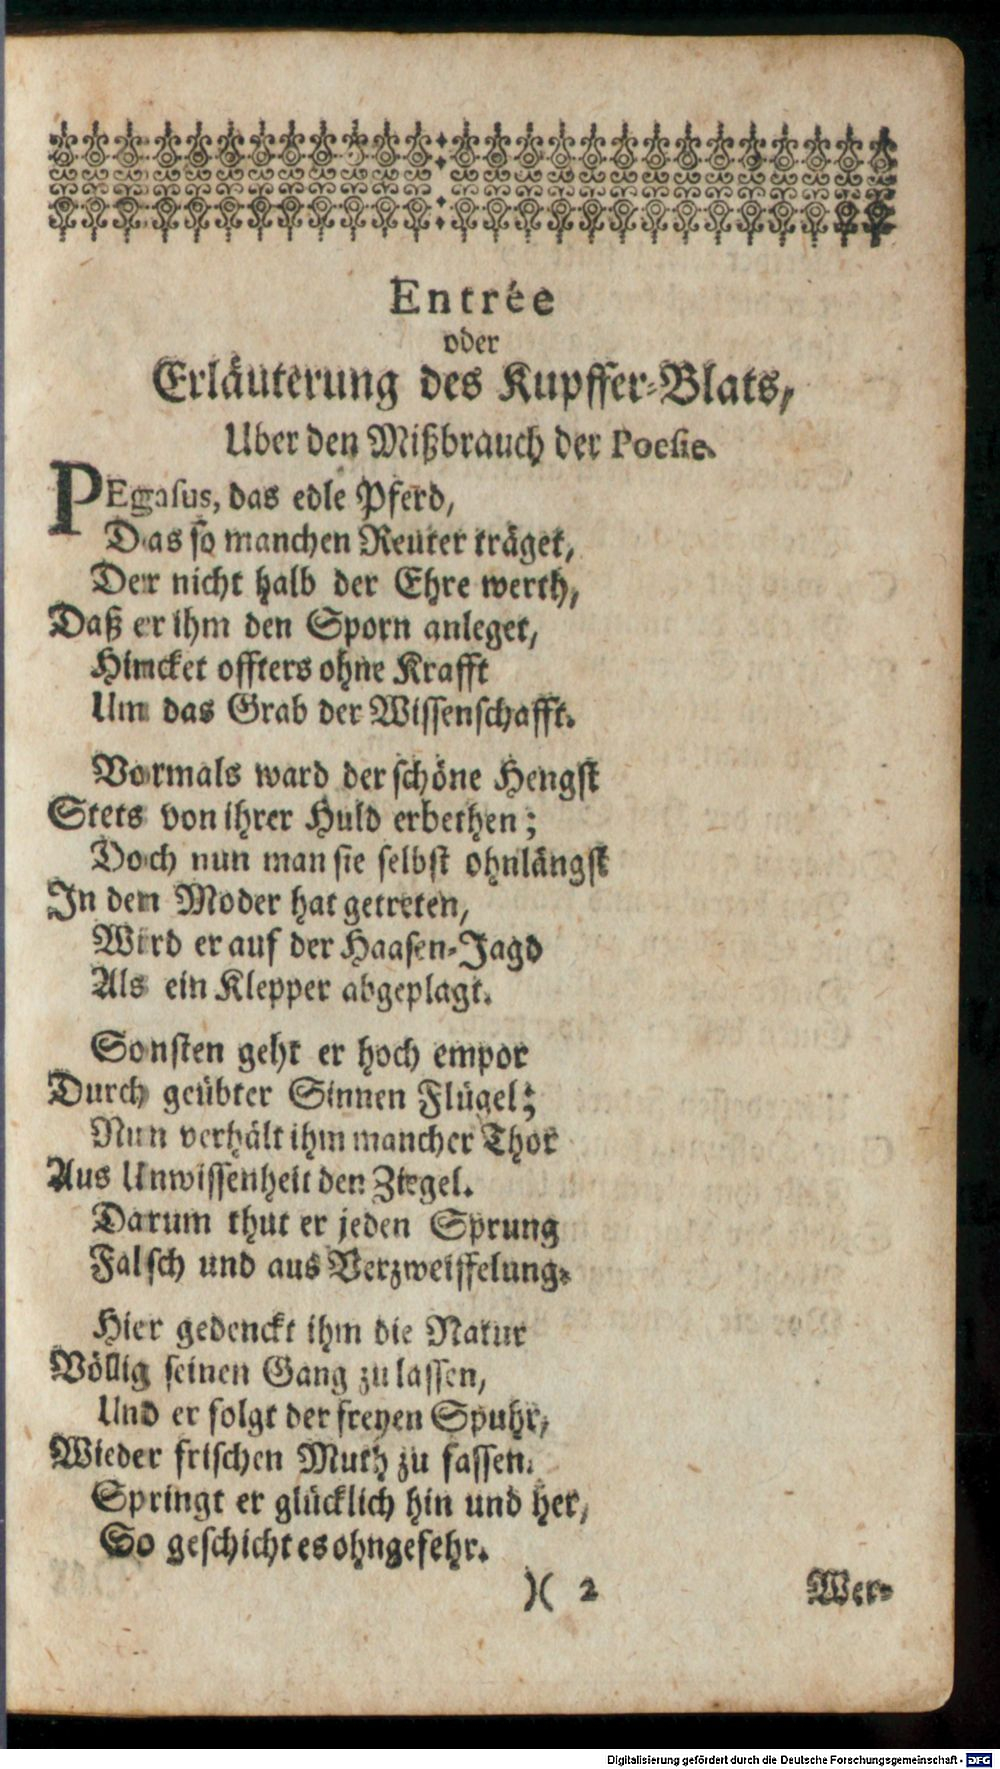 Entrée
oder
Erläuterung des Kupffer-Blats,
Uber den Mißbrauch der Poesie.
PEgasus, das edle Pferd,
Das so manchen Reuter träget,
Der nicht halb der Ehre werth,
Daß er ihm den Sporn anleget,
Hincket offters ohne Krafft
Um das Grab der Wissenschafft.
Vormals ward der schöne Hengst
Stets von ihrer Huld erbethen;
Doch nun man sie selbst ohnlängst
In den Moder hat getreten,
Wird er auf der Haasen-Jagd
Als ein Klepper abgeplagt.
Sonsten geht er hoch empor
Durch geübter Sinnen Flügel;
Nun verhält ihm mancher Thor
Aus Unwissenheit den Ziegel.
Darum thut er jeden Sprung
Falsch und aus Verzweiffelung.
Hier gedenckt ihm die Natur
Völlig seinen Gang zu lassen,
Und er folgt der freyen Spuhr,
Wieder frischen Muth zu fassen.
Springt er glücklich hin und her,
So geschicht es ohngefehr.
)( 2 Wer-
Digitalisierung gefördert durch die Deutsche Forschungsgemeinschaft - DFG